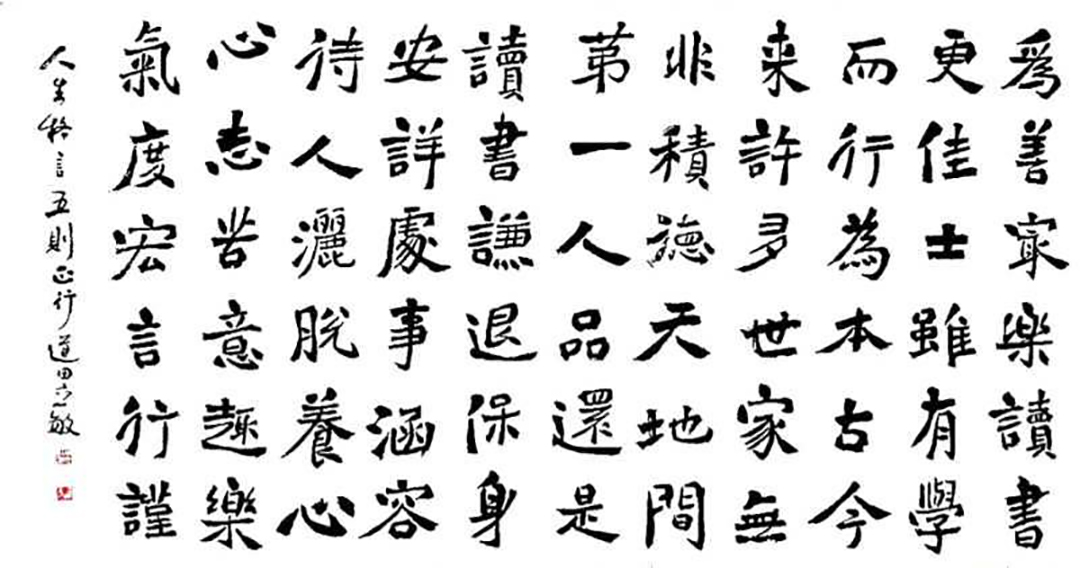 為善寂樂讀書
更佳士雖有學
而行為本古今
来許多世家無
非積德天地間
苐一人品還是
讀書謙退保身
安詳處事涵容
待人灑脫養心
心志苦意趣樂
氣度宏言行謹
人生格言五則正行道田立敏